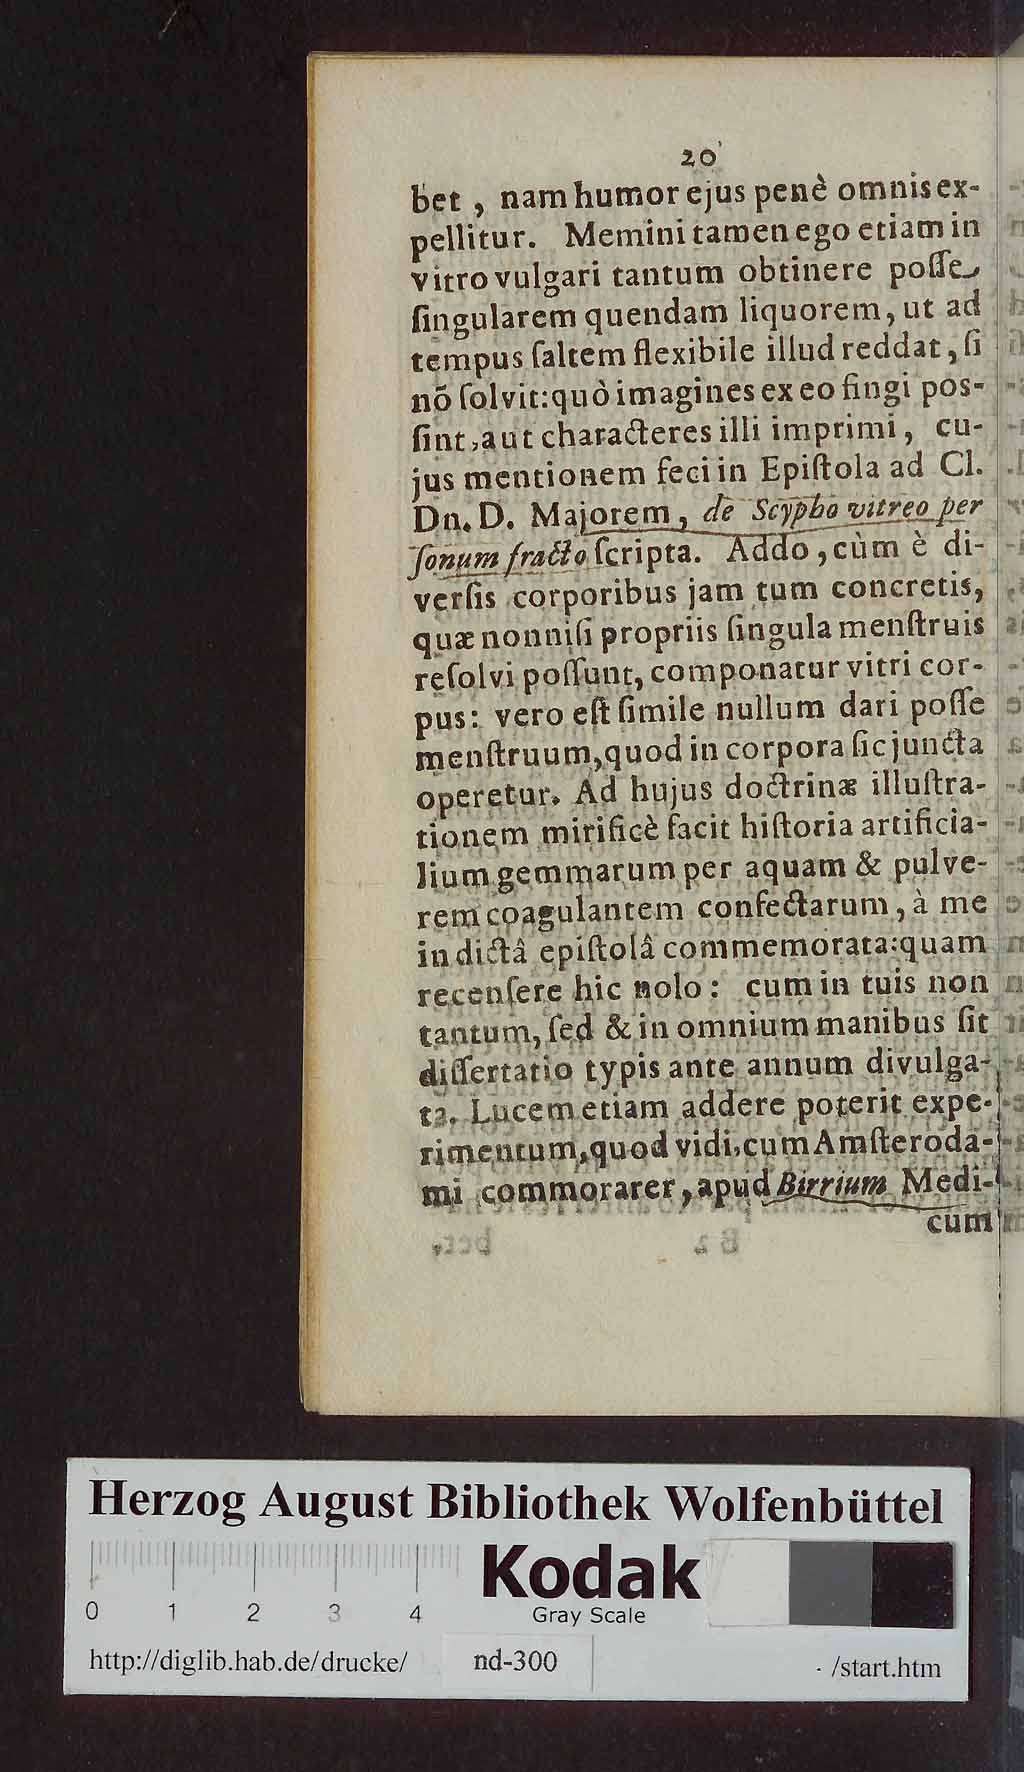 20
bet , nam humor ejus penè omnis ex-
pellitur. Memini tamen ego etiam in
vitro vulgari tantum obtinere poſſe
ſingularem quendam liquorem, ut ad
tempus ſaltem flexibile illud reddat, ſi
nõ ſolvit: quò imagines ex eo fingi pos-
ſint, aut characteres illi imprimi, cu-
jus mentionem feci in Epiſtola ad Cl.
Dn. D. Majorem, de Scypho vitreo per
ſonum fracto ſcripta. Addo, cùm è di-
verſis corporibus jam tum concretis,
quæ nonniſi propriis ſingula menſtruis
reſolvi poſſunt, componatur vitri cor-
pus: vero eſt ſimile nullum dari poſſe
menſtruum, quod in corpora ſic juncta
operetur. Ad hujus doctrinæ illuſtra-
tionem mirificè facit hiſtoria artificia-
lium gemmarum per aquam & pulve-
rem coagulantem confectarum, à me
in dictâ epiſtolâ commemorata: quam
recenſere hic nolo: cum in tuis non
tantum, ſed & in omnium manibus ſit
diſſertatio typis ante annum divulga-
ta. Lucem etiam addere poterit expe-
rimentum, quod vidi, cum Amſteroda-
mi commorarer, apud Birrium Medi-
cum
Herzog August Bibliothek Wolfenbüttel
Kodak
0 1 2 3 4 Gray Scale
http://diglib.hab.de/drucke/ nd-300 /start.htm